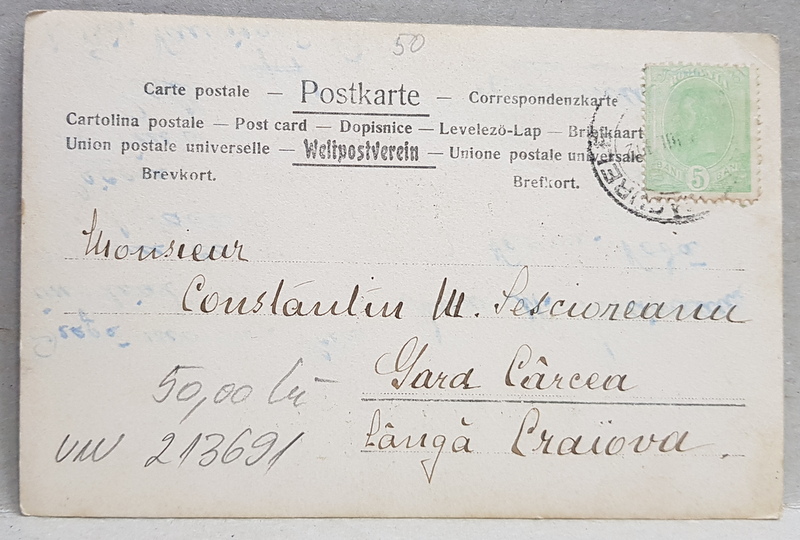 50
Carte postale — Postkarte — Correspondenzkarte
Cartolina postale — Post card — Dopisnice — Levelező-Lap — Briefkaart
Union postale universelle — Weltpostverein — Unione postale universale
Brevkort. Brefkort.
5
Monsieur
Constantin M. Sescioreanu
Gara Cârcea
Lângă Craïova.
50,00 lei
VW 213691